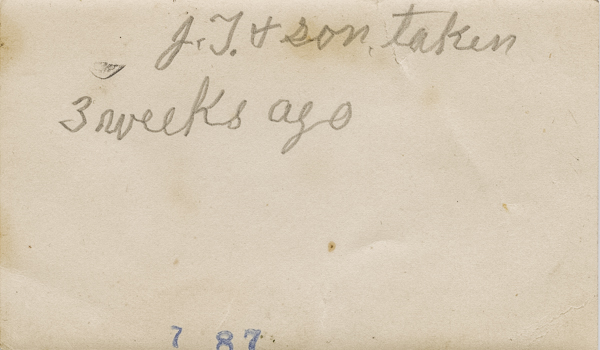 J.T. & son. taken
3 weeks ago
7 87